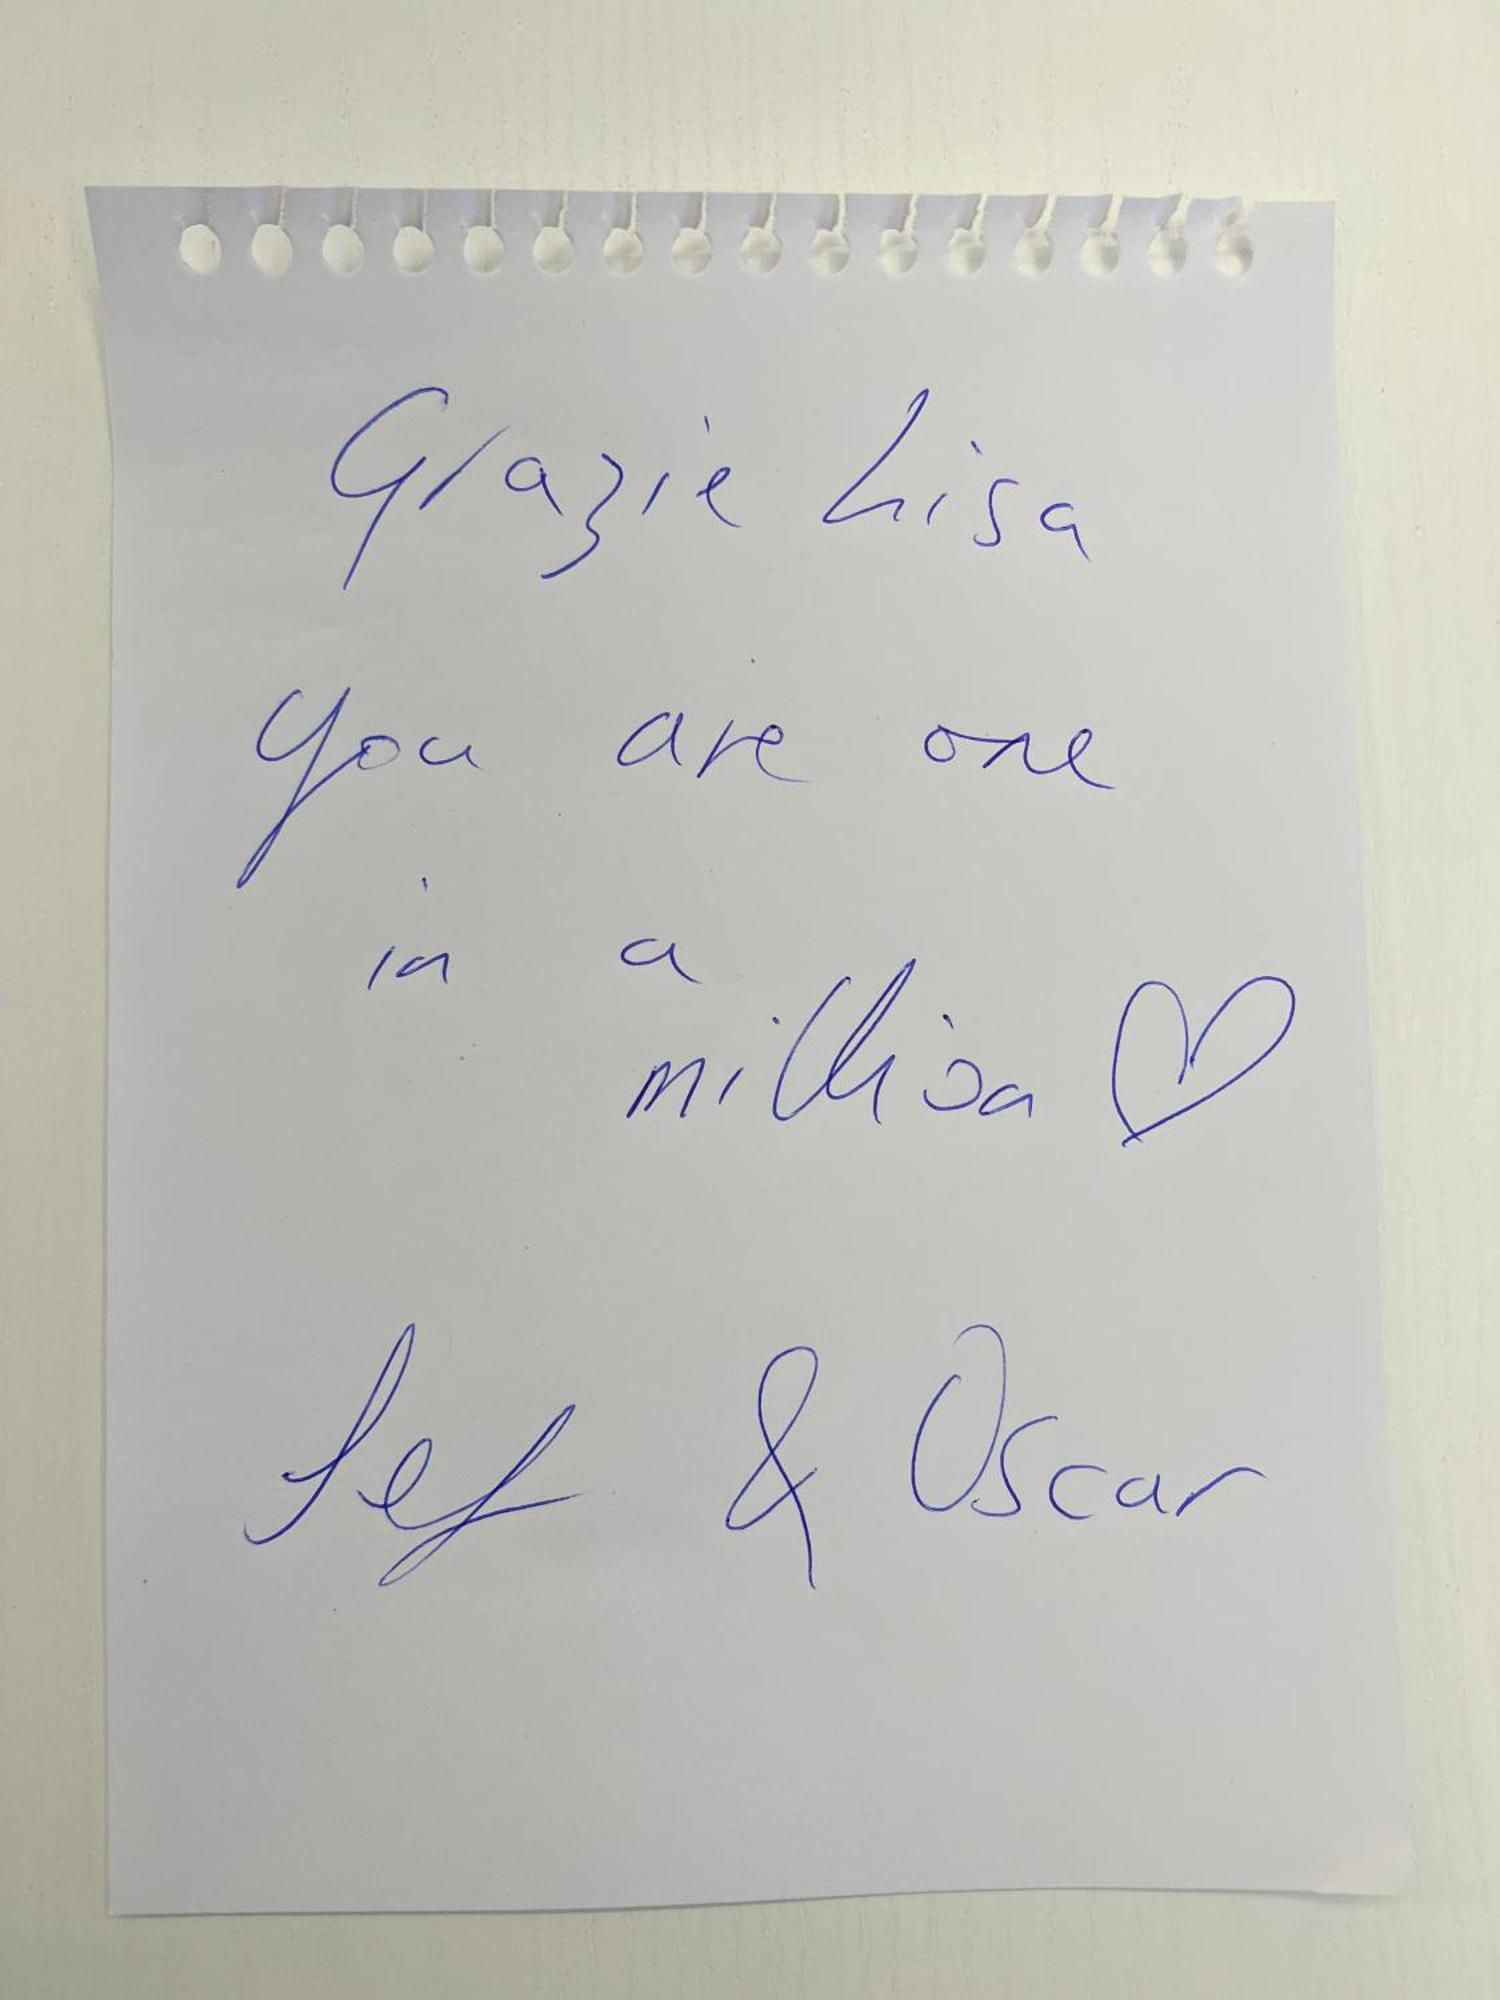 Grazie Lisa
You are one
in a
million ♡
Sef & Oscar